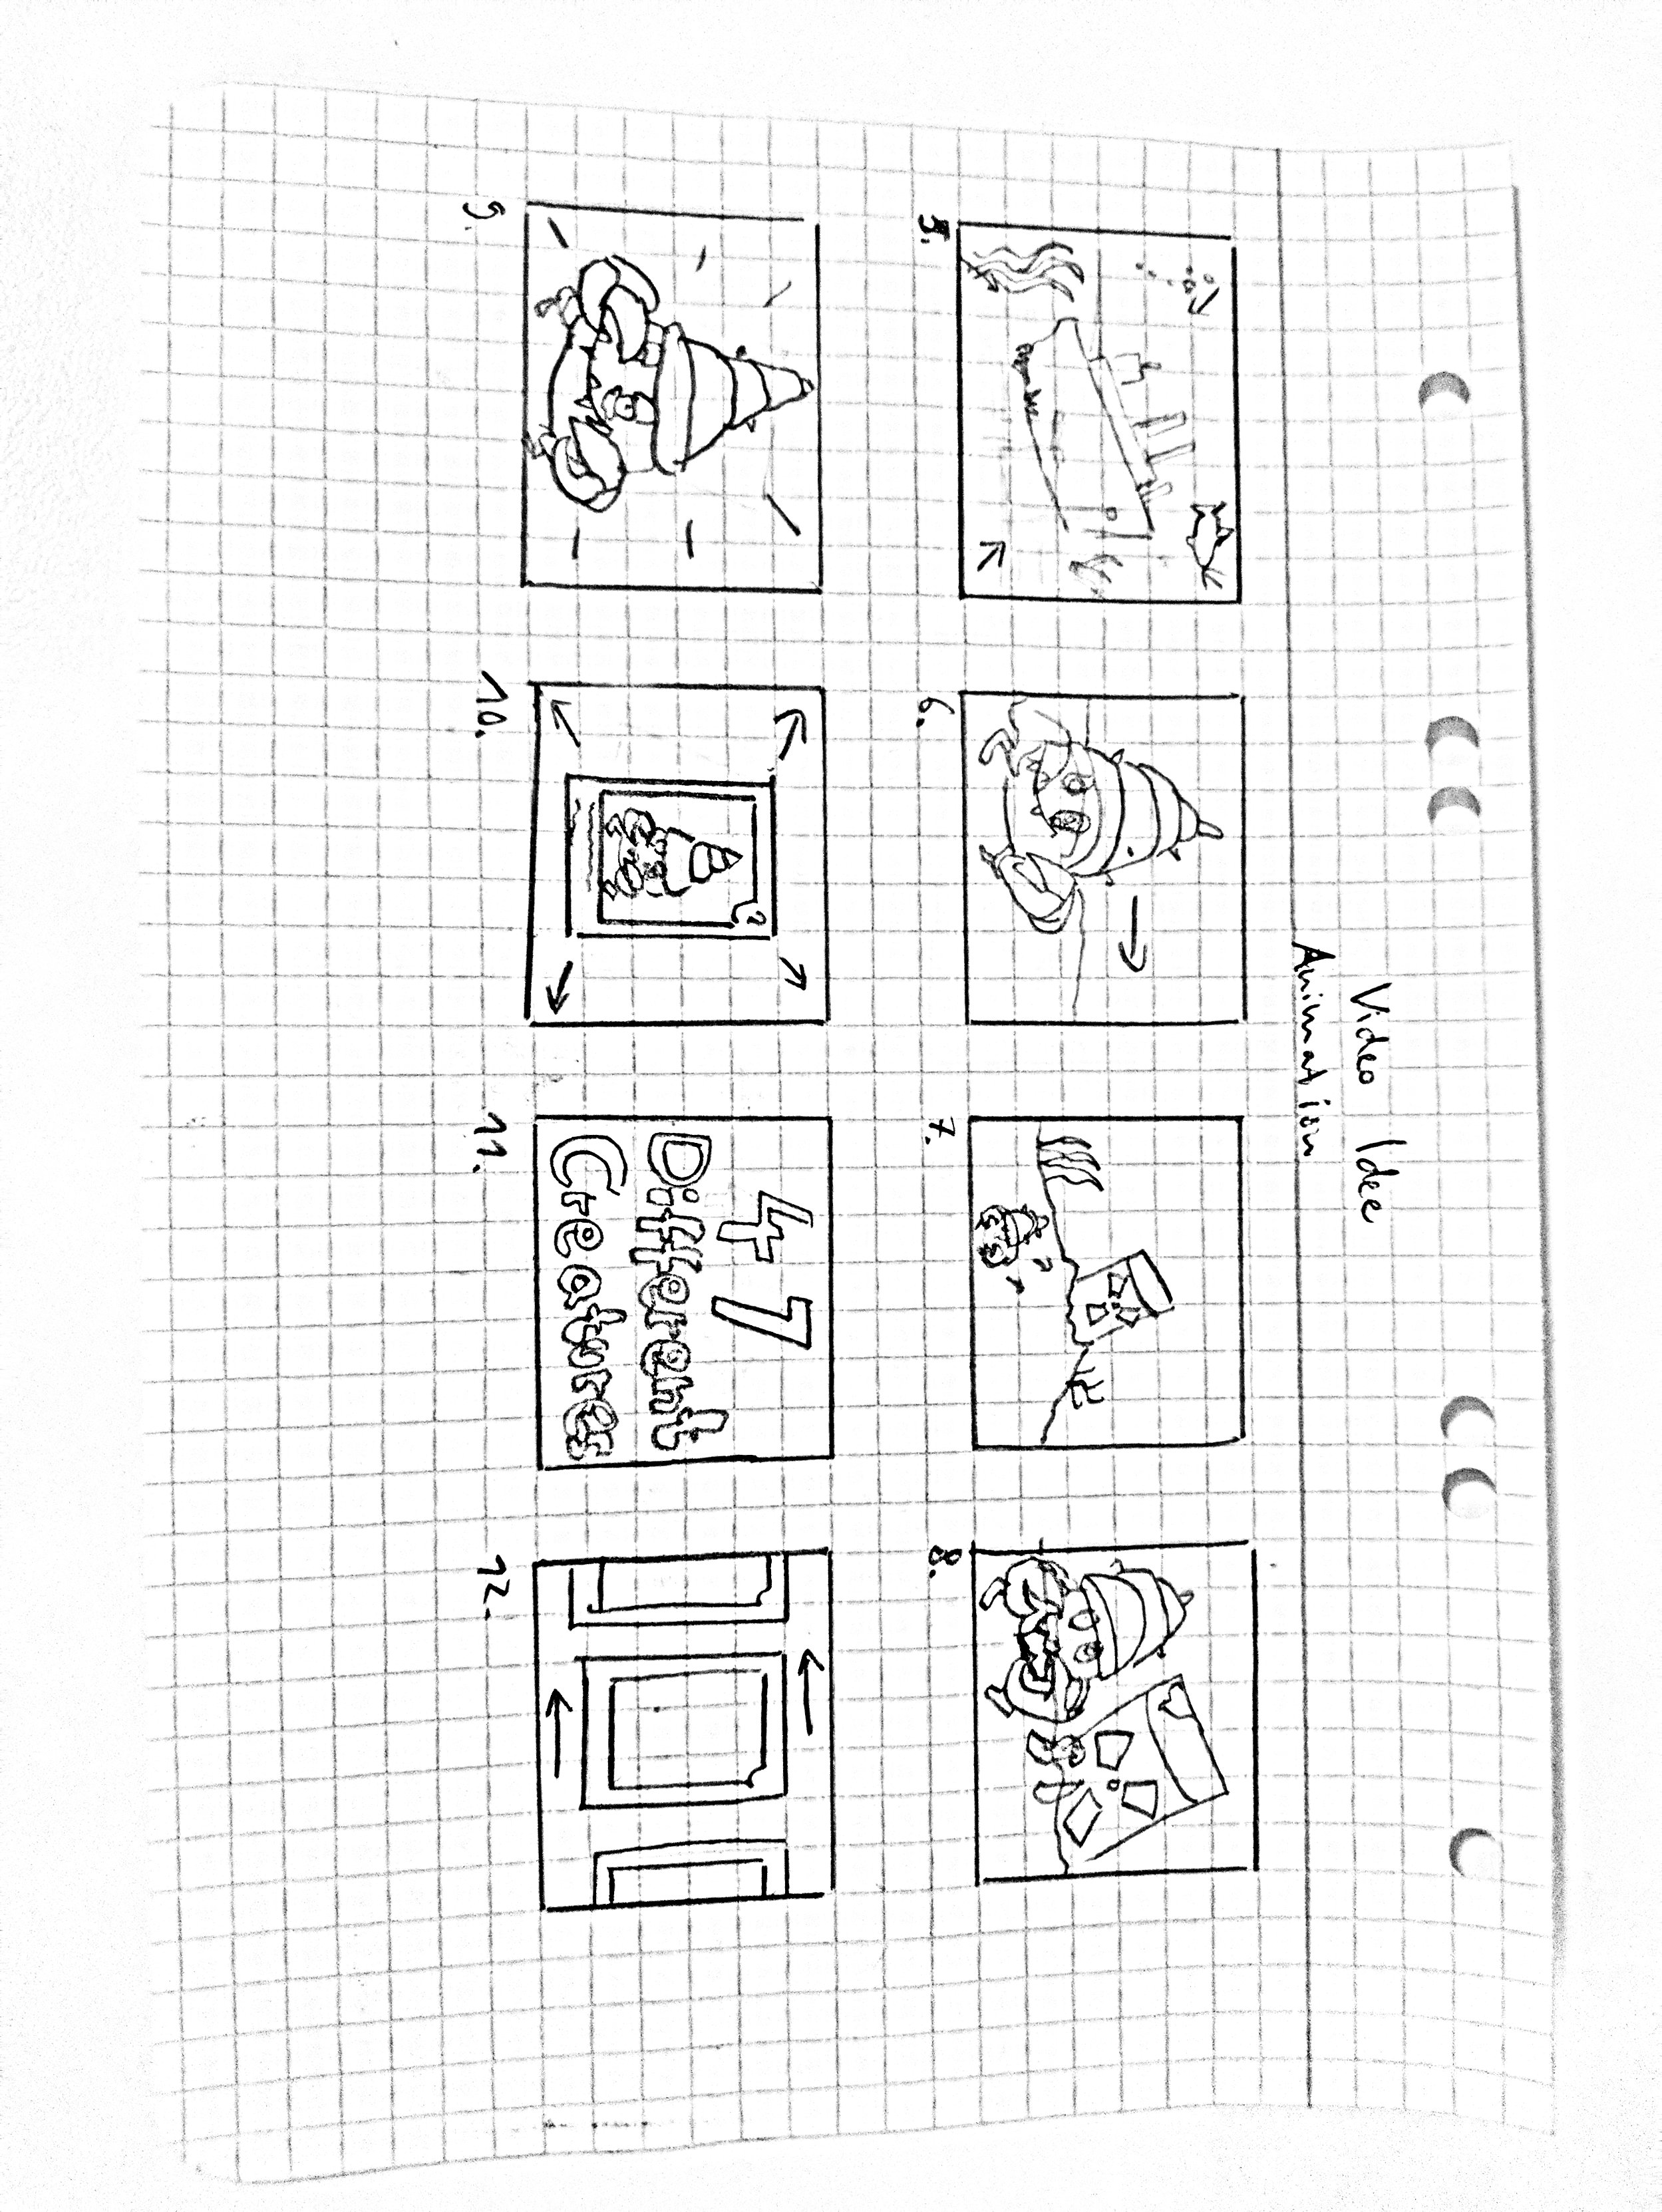 Video Idee
Animation
5.
6.
7.
8.
9.
10.
11.
47
Different
Creatures
12.